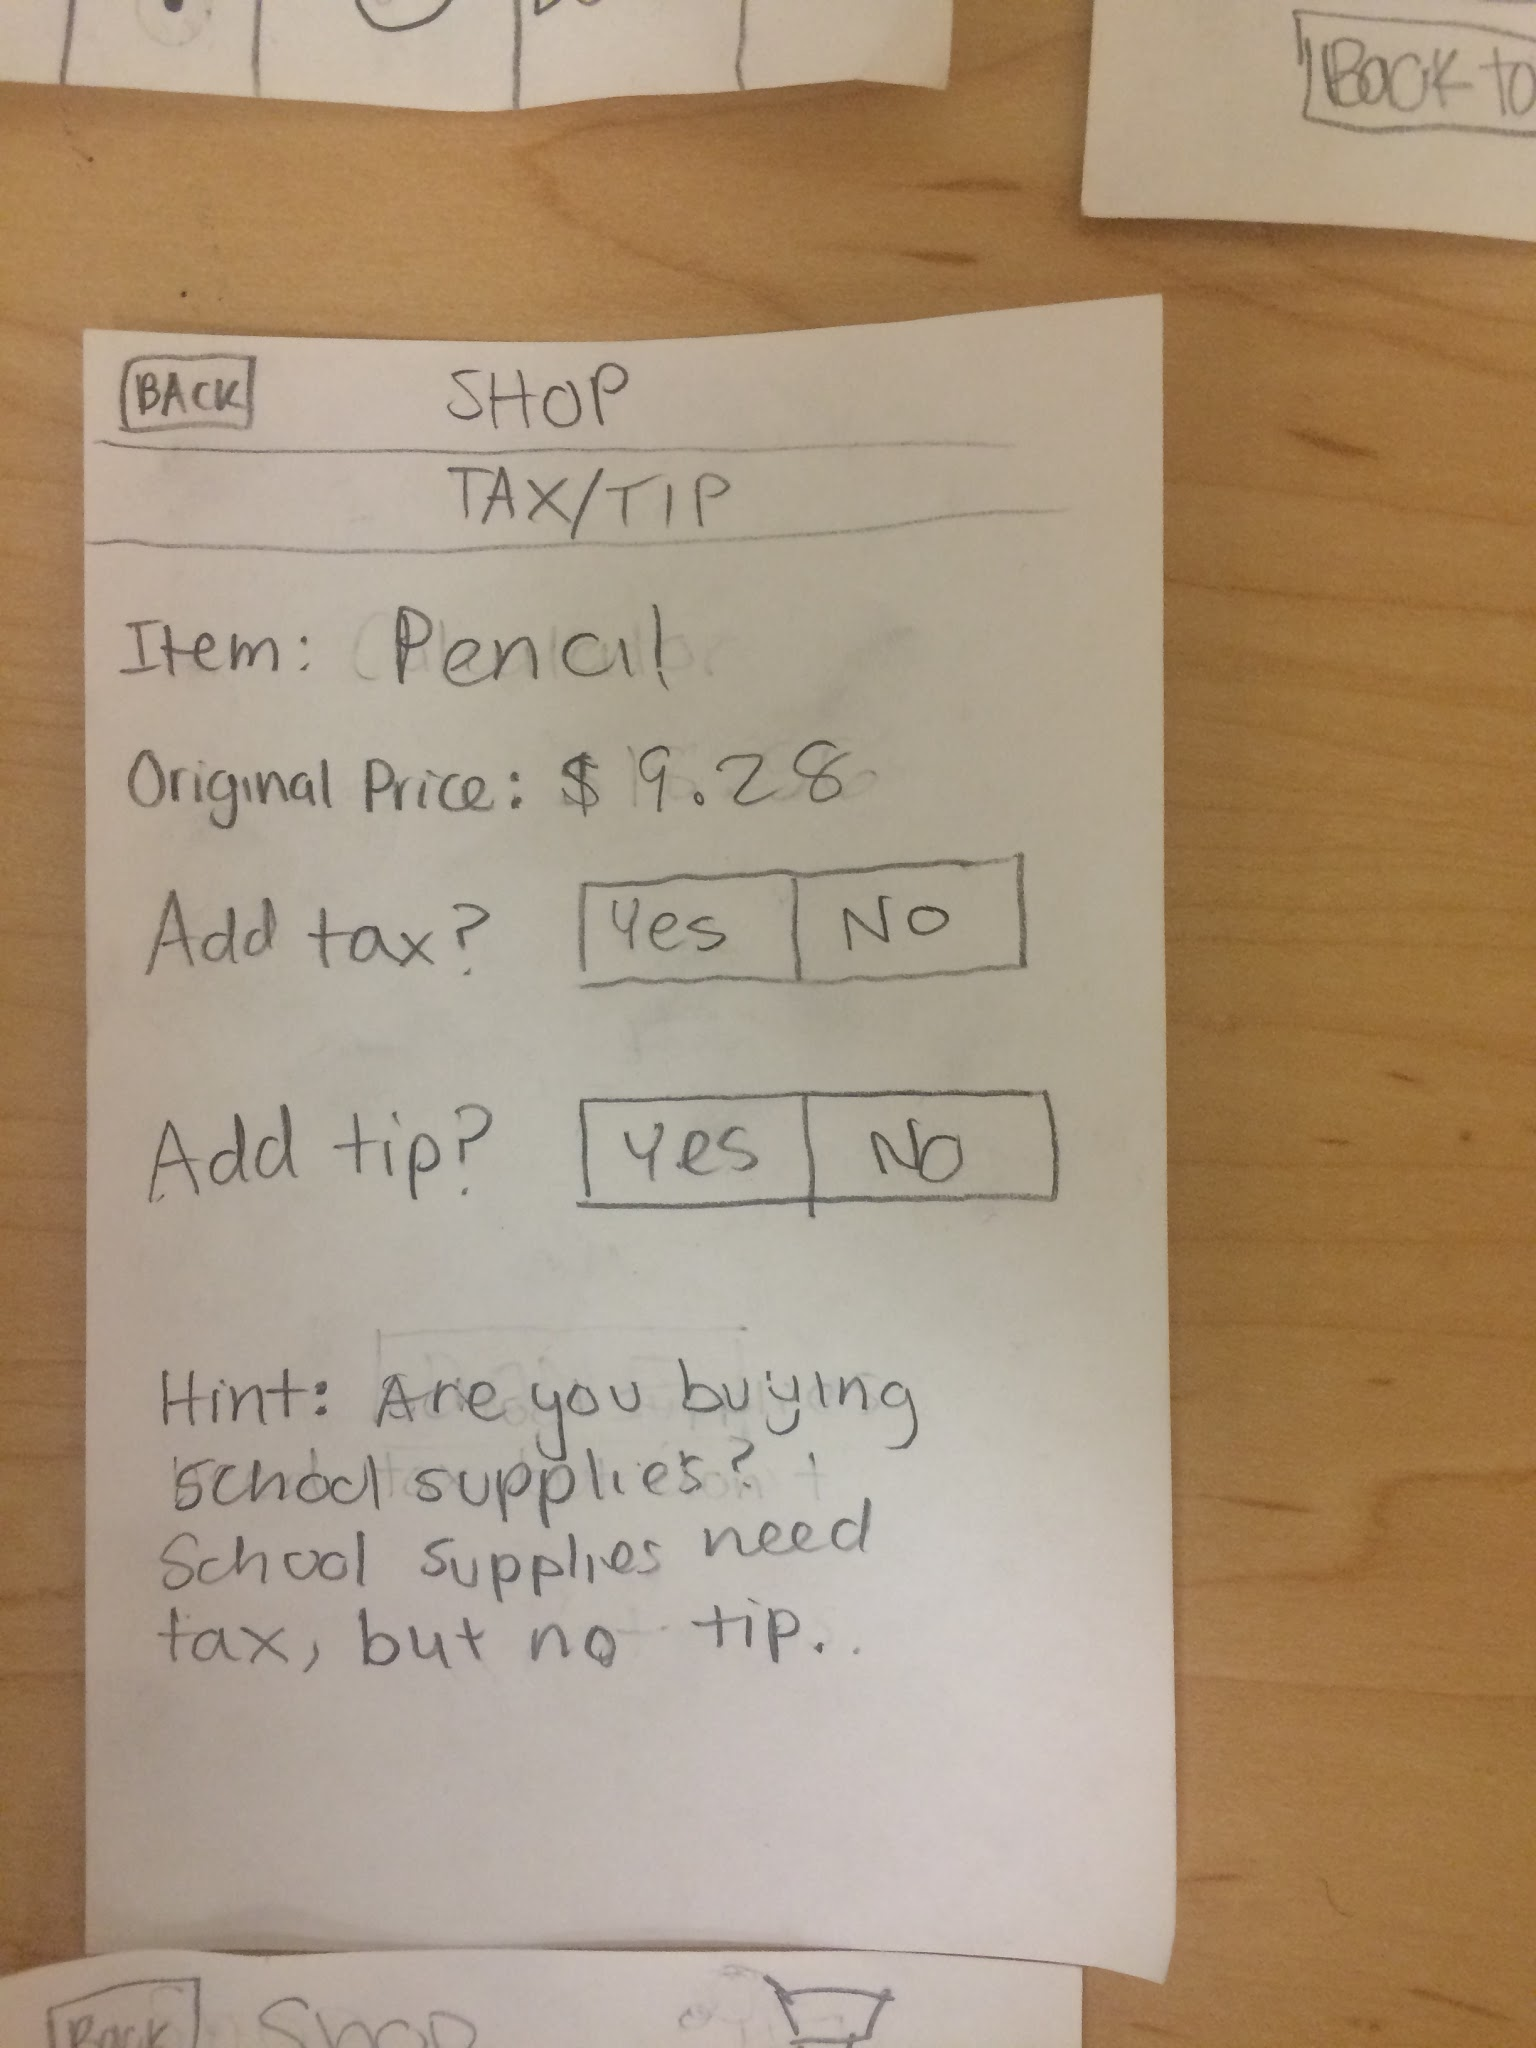 Back to
BACK SHOP
TAX/TIP
Item: Pencil
Original Price: $ 9.28
Add tax? Yes NO
Add tip? Yes NO
Hint: Are you buying
school supplies?
School supplies need
tax, but no tip.
Back Shop